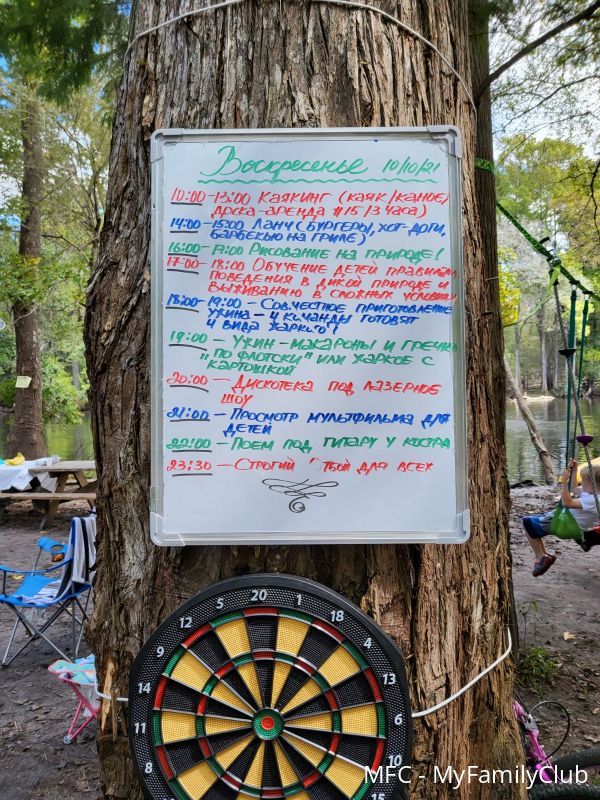 Воскресенье 10/10/21
10:00-13:00 Каякинг (каяк/каное,
дрска-аренда $15/3 часа)
14:00-15:00 Ланч (бургеры, хот-доги,
барбекью на гриле)
16:00-17:00 Рисование на природе!
17:00-18:00 Обучение детей правилам
поведения в дикой природе и
выживанию в сложных условиях
18:00-19:00 - Совместное приготовление
ужина - 4 команды готовят
4 вида жаркого!
19:00 - Ужин - макароны и гречка
"по флотски" или жаркое с
картошкой
20:00 - Дискотека под лазерное
шоу
21:00 - Просмотр мультфильма для
детей
22:00 - Поем под гитару у костра
23:30 - Строгий отбой для всех
9 12 5 20 1 18 4
14 11 8
6 10 15
MFC - MyFamilyClub